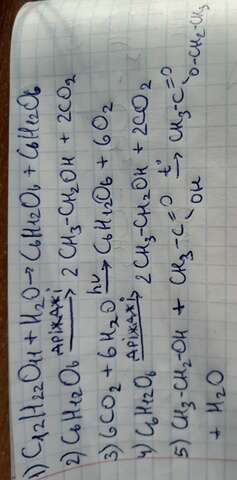 1) C12H22O11 + H2O → C6H12O6 + C6H12O6
2) C6H12O6 дріжджі → 2 CH3-CH2OH + 2CO2
3) 6CO2 + 6H2O hν → C6H12O6 + 6O2
4) C6H12O6 дріжджі → 2CH3-CH2OH + 2CO2
5) CH3-CH2-OH + CH3-C=O OH t° → CH3-C=O O-CH2-CH3
+ H2O